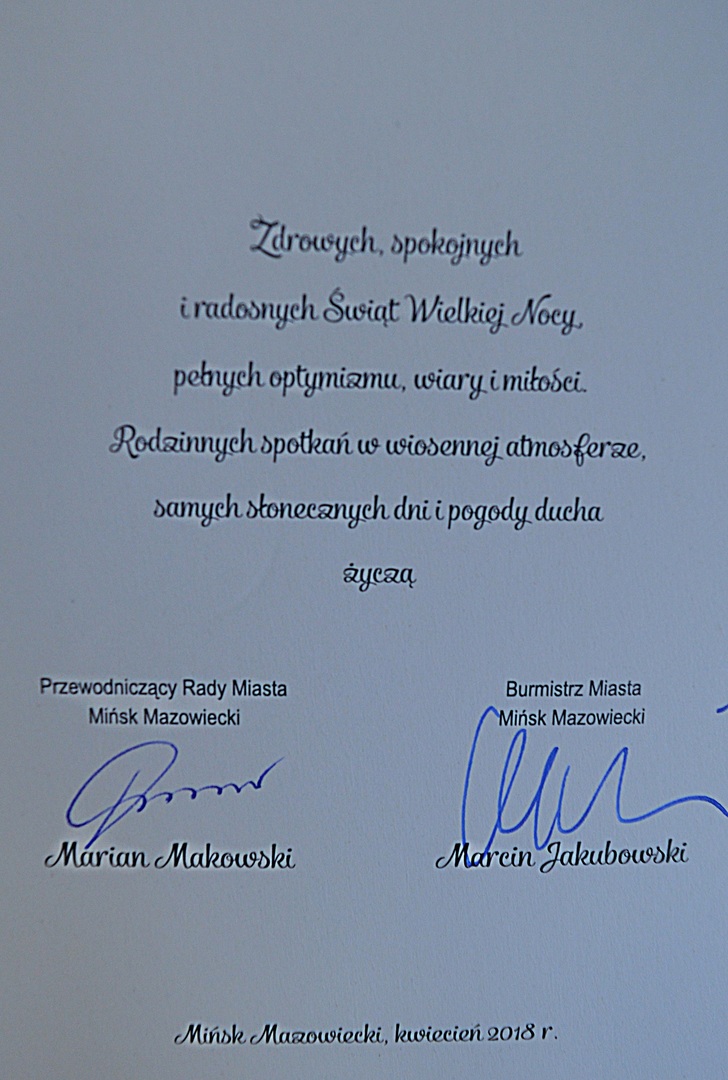 Zdrowych, spokojnych
i radosnych Świąt Wielkiej Nocy,
pełnych optymizmu, wiary i miłości.
Rodzinnych spotkań w wiosennej atmosferze,
samych słonecznych dni i pogody ducha
życzą
Przewodniczący Rady Miasta
Mińsk Mazowiecki
Marian Makowski
Burmistrz Miasta
Mińsk Mazowiecki
Marcin Jakubowski
Mińsk Mazowiecki, kwiecień 2018 r.